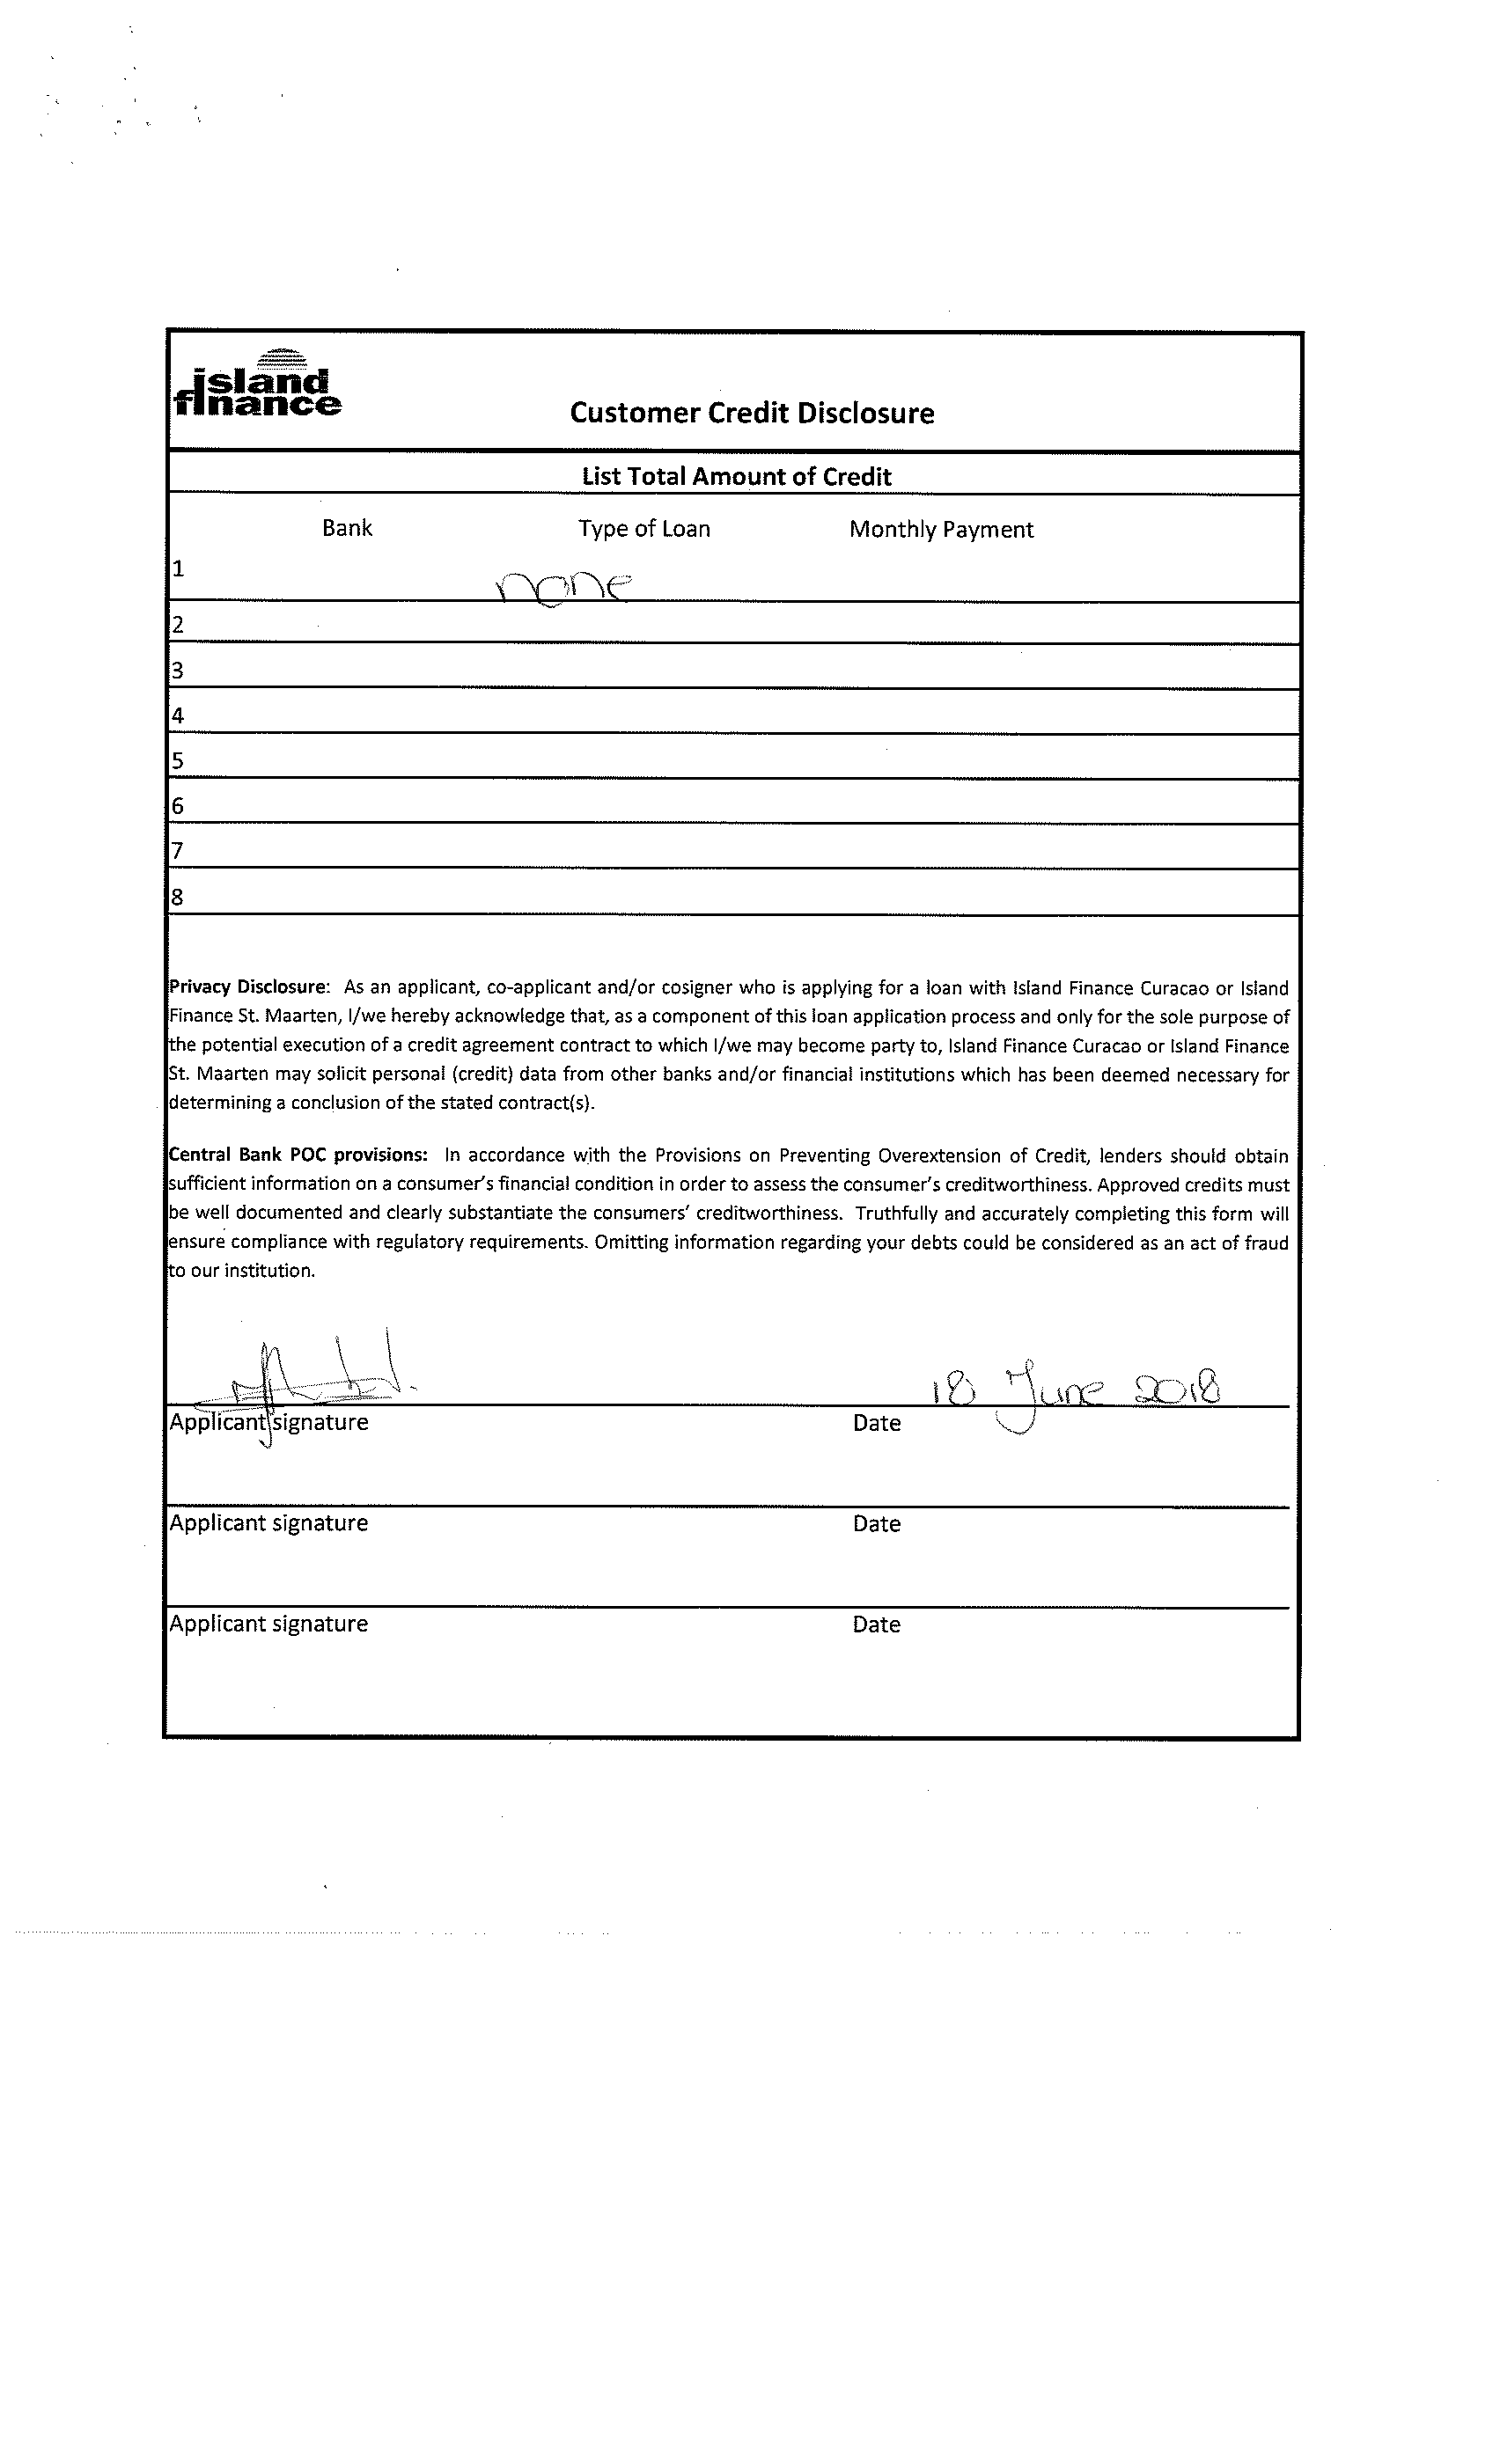 island
finance
Customer Credit Disclosure
List Total Amount of Credit
Bank Type of Loan Monthly Payment
1
none
2
3
4
5
6
7
8
Privacy Disclosure: As an applicant, co-applicant and/or cosigner who is applying for a loan with Island Finance Curacao or Island
Finance St. Maarten, I/we hereby acknowledge that, as a component of this loan application process and only for the sole purpose of
the potential execution of a credit agreement contract to which I/we may become party to, Island Finance Curacao or Island Finance
St. Maarten may solicit personal (credit) data from other banks and/or financial institutions which has been deemed necessary for
determining a conclusion of the stated contract(s).
Central Bank POC provisions: In accordance with the Provisions on Preventing Overextension of Credit, lenders should obtain
sufficient information on a consumer's financial condition in order to assess the consumer's creditworthiness. Approved credits must
be well documented and clearly substantiate the consumers' creditworthiness. Truthfully and accurately completing this form will
ensure compliance with regulatory requirements. Omitting information regarding your debts could be considered as an act of fraud
to our institution.
18 June 2018
Applicant signature Date
Applicant signature Date
Applicant signature Date